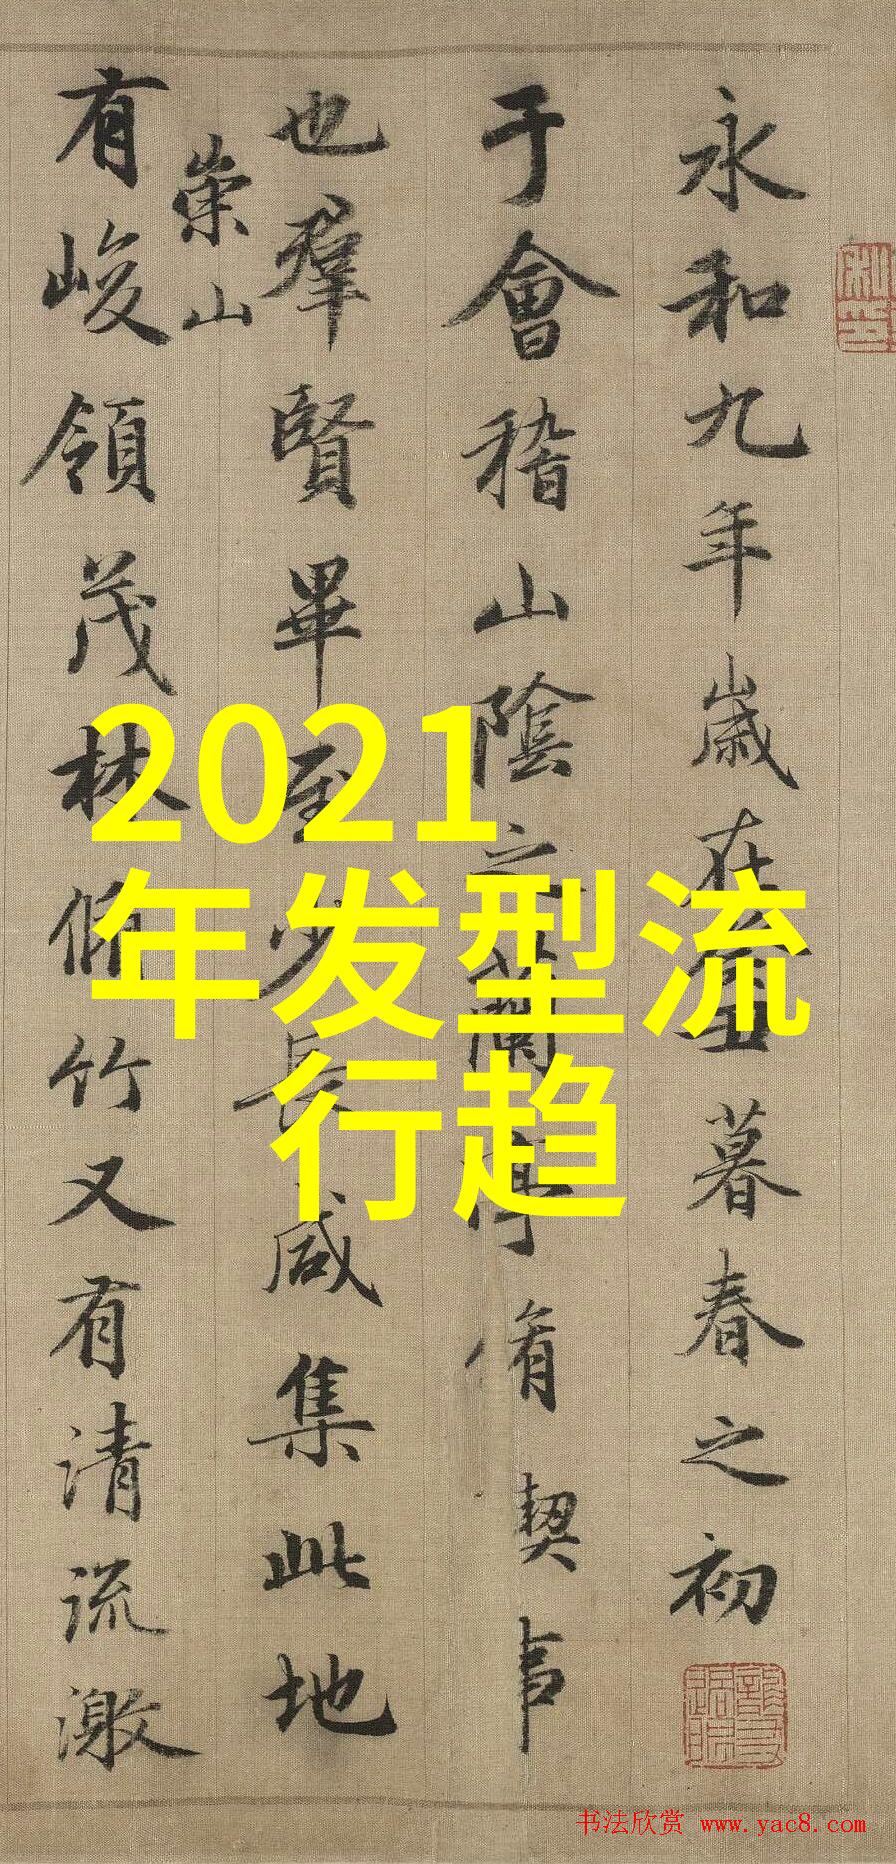 永和九年歲在癸丑暮春之初
于會稽山陰之蘭亭脩禊事
也羣賢畢至少長咸集此地
崇山
有峻領茂林脩竹又有清流激
2021
年发型流
行趋
书法欣赏 www.yac8.com